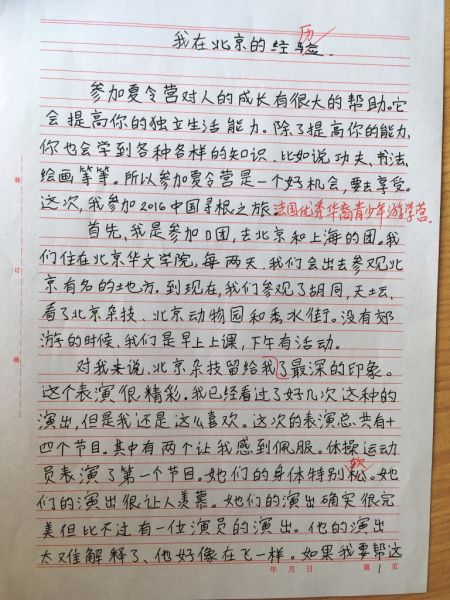 我在北京的经验.
历
参加夏令营对人的成长有很大的帮助。它
会提高你的独立生活能力。除了提高你的能力,
你也会学到各种各样的知识、比如说功夫、书法、
绘画等等。所以参加夏令营是一个好机会,要去享受。
这次,我参加2016中国寻根之旅法国优秀华裔青少年游学营.
首先,我是参加D团,去北京和上海的团。我
们住在北京华文学院,每两天、我们会出去参观北
京有名的地方。到现在,我们参观了胡同,天坛,
看了北京杂技、北京动物园和秀水街。没有郊
游的时候、我们是早上上课,下午有活动。
对我来说、北京杂技留给我了最深的印象。
这个表演很精彩。我已经看过了好几次这种的
演出,但是我还是这么喜欢。这次的表演总共有十
四个节目。其中有两个让我感到佩服。体操运动
员表演了第一个节目。她们的身体特别松。她
软
们的演出很让人羡慕。她们的演出确实很完
美但比不过有一位演员的演出。他的演出
太难解释了、他好像在飞一样。如果我要帮这
年 月 日
第 1 页
装
订
线